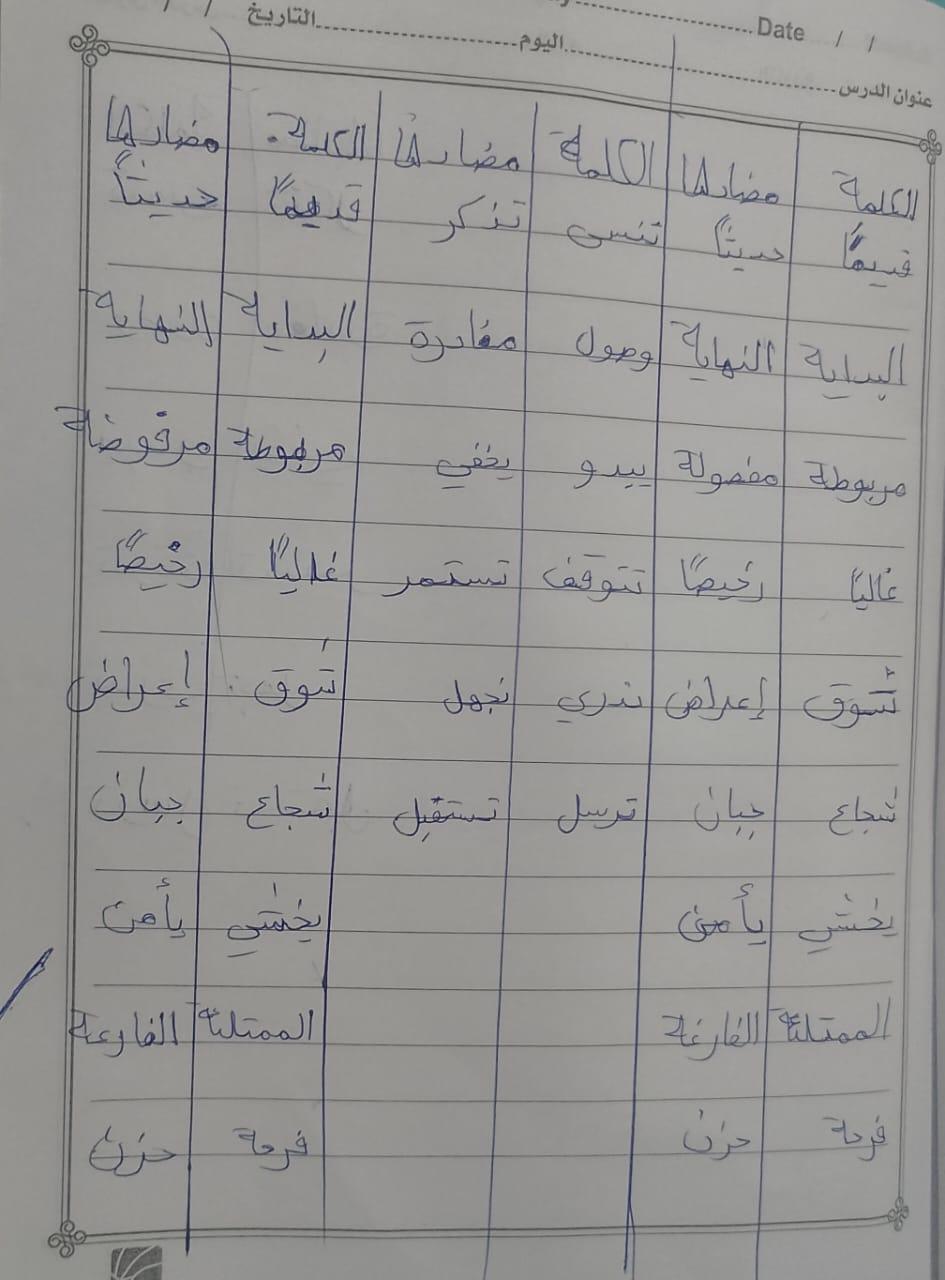 Date / /
التاريخ / /
اليوم
عنوان الدرس
الكلمة مضادها الكلمة مضادها الكلمة مضادها
قديمًا حديثًا تنسى تذكر قديمًا حديثًا
البداية النهاية وصول مغادرة البداية النهاية
مربوطة مفصولة يبدو يخفي مربوطة مرفوضة
غاليًا رخيصًا تتوقف تستمر غاليًا رخيصًا
شوق إعراض ندري نجهل شوق إعراض
شجاع جبان ترسل تستقبل شجاع جبان
يخشي يأمن يخشي يأمن
الممتلئة الفارغة الممتلئة الفارغة
فرحة حزن فرحة حزن